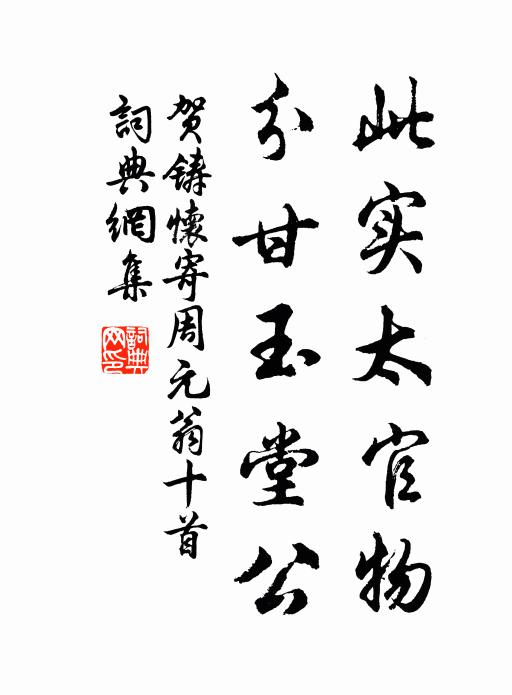 此实太官物
分甘玉堂公
贺铸怀寄周元翁十首
詞典網集
詞典网印